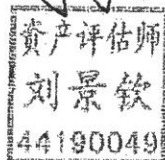 资产评估师
刘景钦
44190049